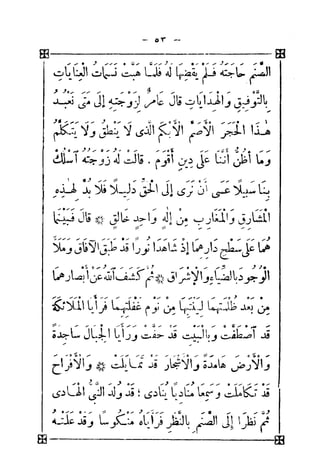 - ٥٣ -
الصَّنَمِ حَاجَتَهُ فَلَمْ يَقْضِهَا لَهُ فَلَمَّا هَبَّتْ نَسَمَاتُ الْعِنَايَاتِ
بِالتَّوْفِيقِ وَالْهِدَايَاتِ قَالَ عَامِرٌ لِزَوْجَتِهِ إِلَى مَتَى نَعْبُدُ
هَذَا الْحَجَرَ الْأَصَمَّ الْأَبْكَمَ الَّذِى لَا يَنْطِقُ وَلَا يَتَكَلَّمُ
وَمَا أَظُنُّ أَنَّنَا عَلَى دِينٍ أَقْوَمَ . قَالَتْ لَهُ زَوْجَتُهُ اُسْلُكْ
بِنَا سَبِيلًا عَسَى أَنْ نَرَى إِلَى الْحَقِّ دَلِيلًا فَلَا بُدَّ لِهَذِهِ
الْمَشَارِقِ وَالْمَغَارِبِ مِنْ إِلَهٍ وَاحِدٍ خَالِقٍ * قَالَ فَبَيْنَمَا
هُمَا عَلَى سَطْحِ دَارِهِمَا إِذْ شَاهَدَا نُورًا قَدْ طَبَّقَ الْآفَاقَ وَمَلَأَ
الْوُجُودَ بِالضِّيَاءِ وَالْإِشْرَاقِ * ثُمَّ كَشَفَ اللهُ عَنْ أَبْصَارِهِمَا
مِنْ بَعْدِ ظُلْمَتِهِمَا لِيَنْتَبِهَا مِنْ نَوْمِ غَفْلَتِهِمَا فَرَأَيَا الْمَلَائِكَةَ
قَدِ اصْطَفَّتْ وَبِالْبَيْتِ قَدْ حَفَّتْ وَرَأَيَا الْجِبَالَ سَاجِدَةً
وَالْأَرْضَ هَامِدَةً وَالْأَشْجَارَ قَدْ تَمَايَلَتْ * وَالْأَفْرَاحَ
قَدْ تَكَامَلَتْ وَسَمِعَا مُنَادِيًا يُنَادِى : قَدْ وُلِدَ النَّبِىُّ الْهَادِى
ثُمَّ نَظَرَا إِلَى الصَّنَمِ بِالنَّظَرِ فَرَأَيَاهُ مَنْكُوسًا وَقَدْ عَلَتْهُ